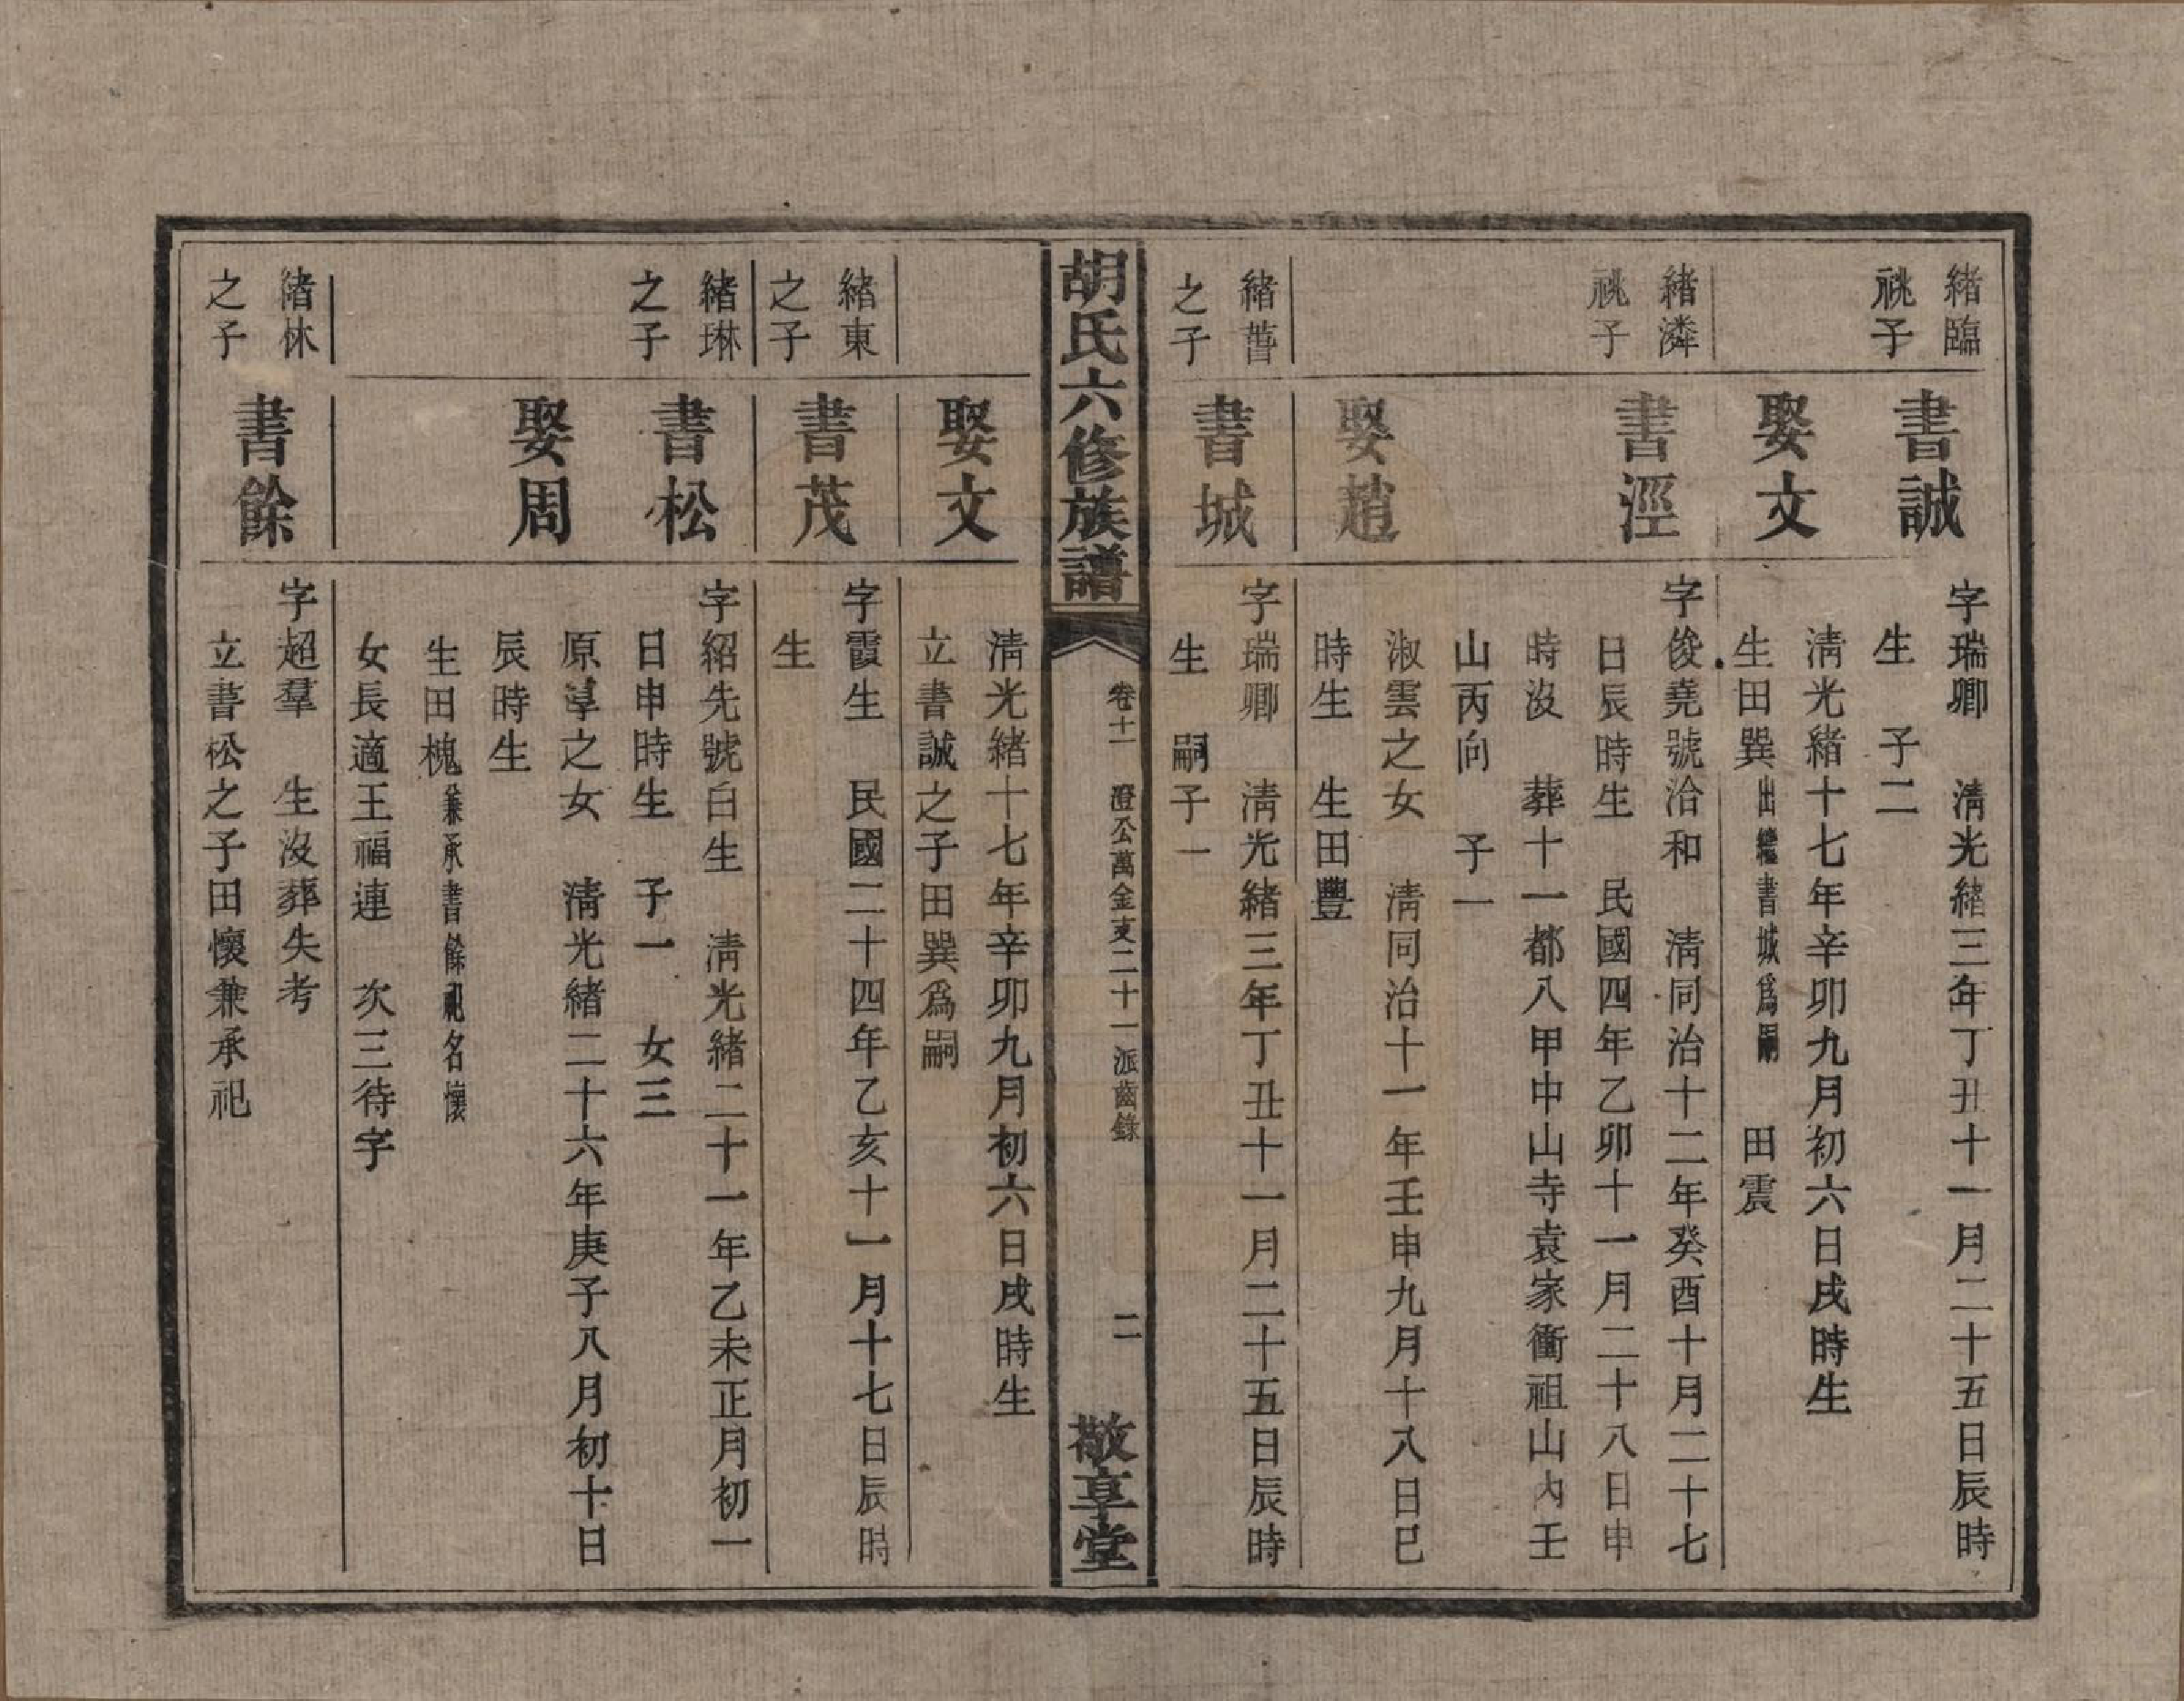 緒臨
祧子
書誠
字瑞卿　清光緒三年丁丑十一月二十五日辰時
生　子二
娶文
清光緒十七年辛卯九月初六日戌時生
生田巽出繼書城爲嗣　田震
緒潾
祧子
書涇
字俊堯號洽和　清同治十二年癸酉十月二十七
日辰時生　民國四年乙卯十一月二十八日申
時沒　葬十一都八甲中山寺袁家衝祖山內壬
山丙向　子一
娶趙
淑雲之女　清同治十一年壬申九月十八日巳
時生　生田豐
緒蕾
之子
書城
字瑞卿　清光緒三年丁丑十一月二十五日辰時
生　嗣子一
胡氏六修族譜
卷十一　澄公萬金支二十一派齒錄
二
敬享堂
娶文
清光緒十七年辛卯九月初六日戌時生
立書誠之子田巽爲嗣
緒東
之子
書茂
字霞生　民國二十四年乙亥十一月十七日辰時
生
緒琳
之子
書松
字紹先號白生　清光緒二十一年乙未正月初一
日申時生　子一　女三
娶周
原淳之女　清光緒二十六年庚子八月初十日
辰時生
生田槐兼承書餘祀名懷
女長適王福連　次三待字
緒林
之子
書餘
字超羣　生沒葬失考
立書松之子田懷兼承祀